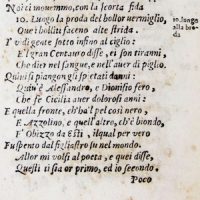 Noi ci mouemmo, con la scorta fida
10. Lungo la proda del bollor vermiglio,
Oue i bolliti faceno alte strida.
I' vidi gente sotto infino al ciglio:
E'l gran Centauro disse, ei son tiranni,
Che dier nel sangue, e nell'auer di piglio.
Quiui si piangon gli spietati danni:
Quiu'è Alessandro, e Dionisio fero,
Che fe Cicilia auer dolorosi anni:
E quella fronte, c'ha'l pel così nero,
E Azzolino, e quell'altro, ch'è biondo,
E' Obizzo da Esti, ilqual per vero
Fu spento dal figliastro su nel mondo.
Allor mi volsi al poeta, e quei disse,
Questi ti sia or primo, ed io secondo.
Poco
10. lungo
alla pro
da